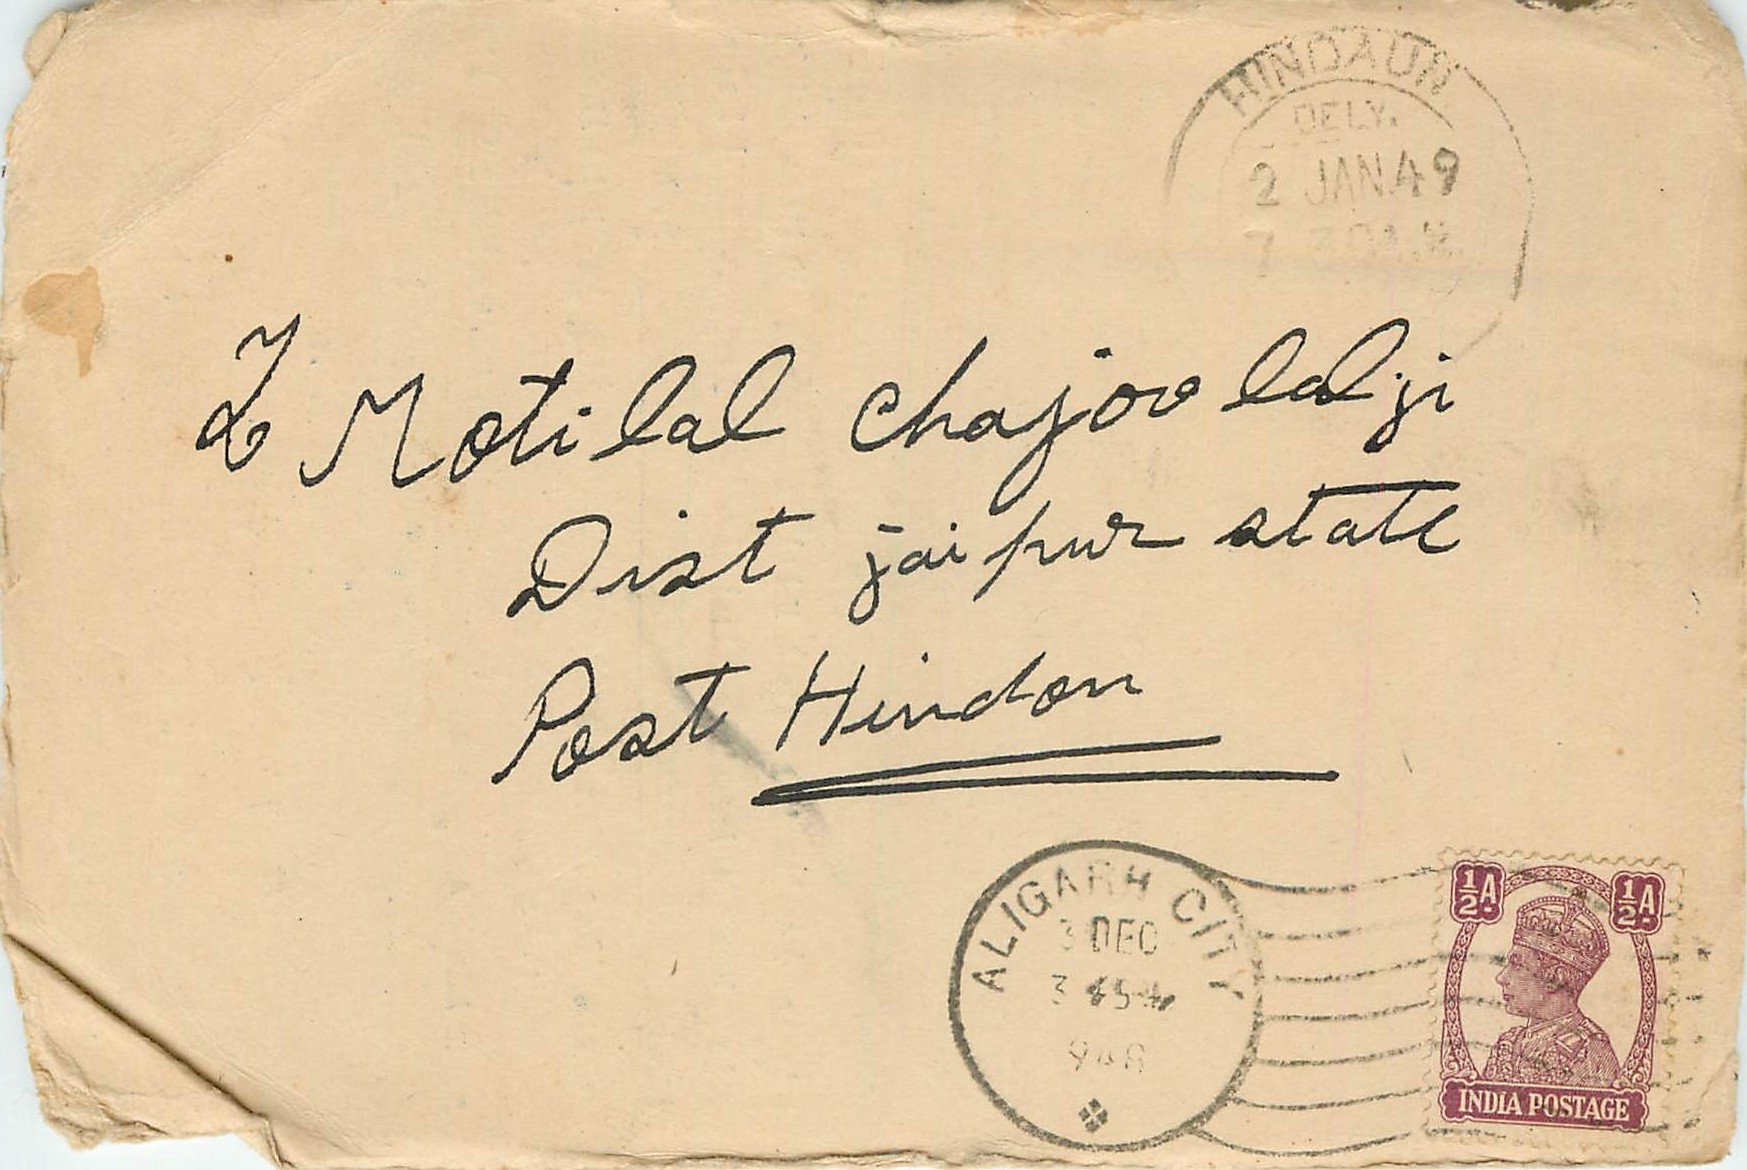 HINDAUN
DELY.
2 JAN.49
7 30A.M.
To Motilal Chajoo lalji
Dist jaipur state
Post Hindon
ALIGARH CITY
3 DEC
948
½A. ½A.
INDIA POSTAGE